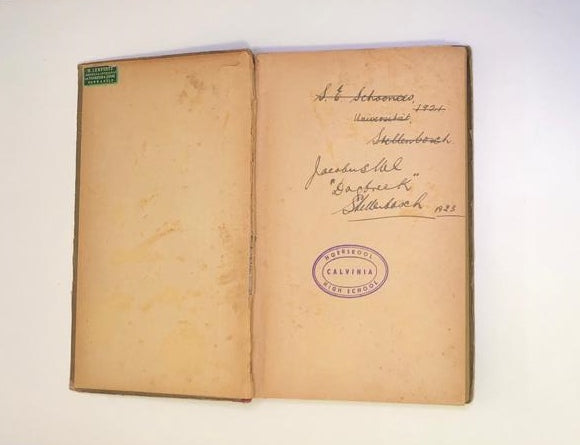 S. E. Schooness,
1921
Universitat,
Stellenbosch
Jacobus Nel
"Dagbreek"
Stellenbosch 1923
HOËRSKOOL
CALVINIA
HIGH SCHOOL